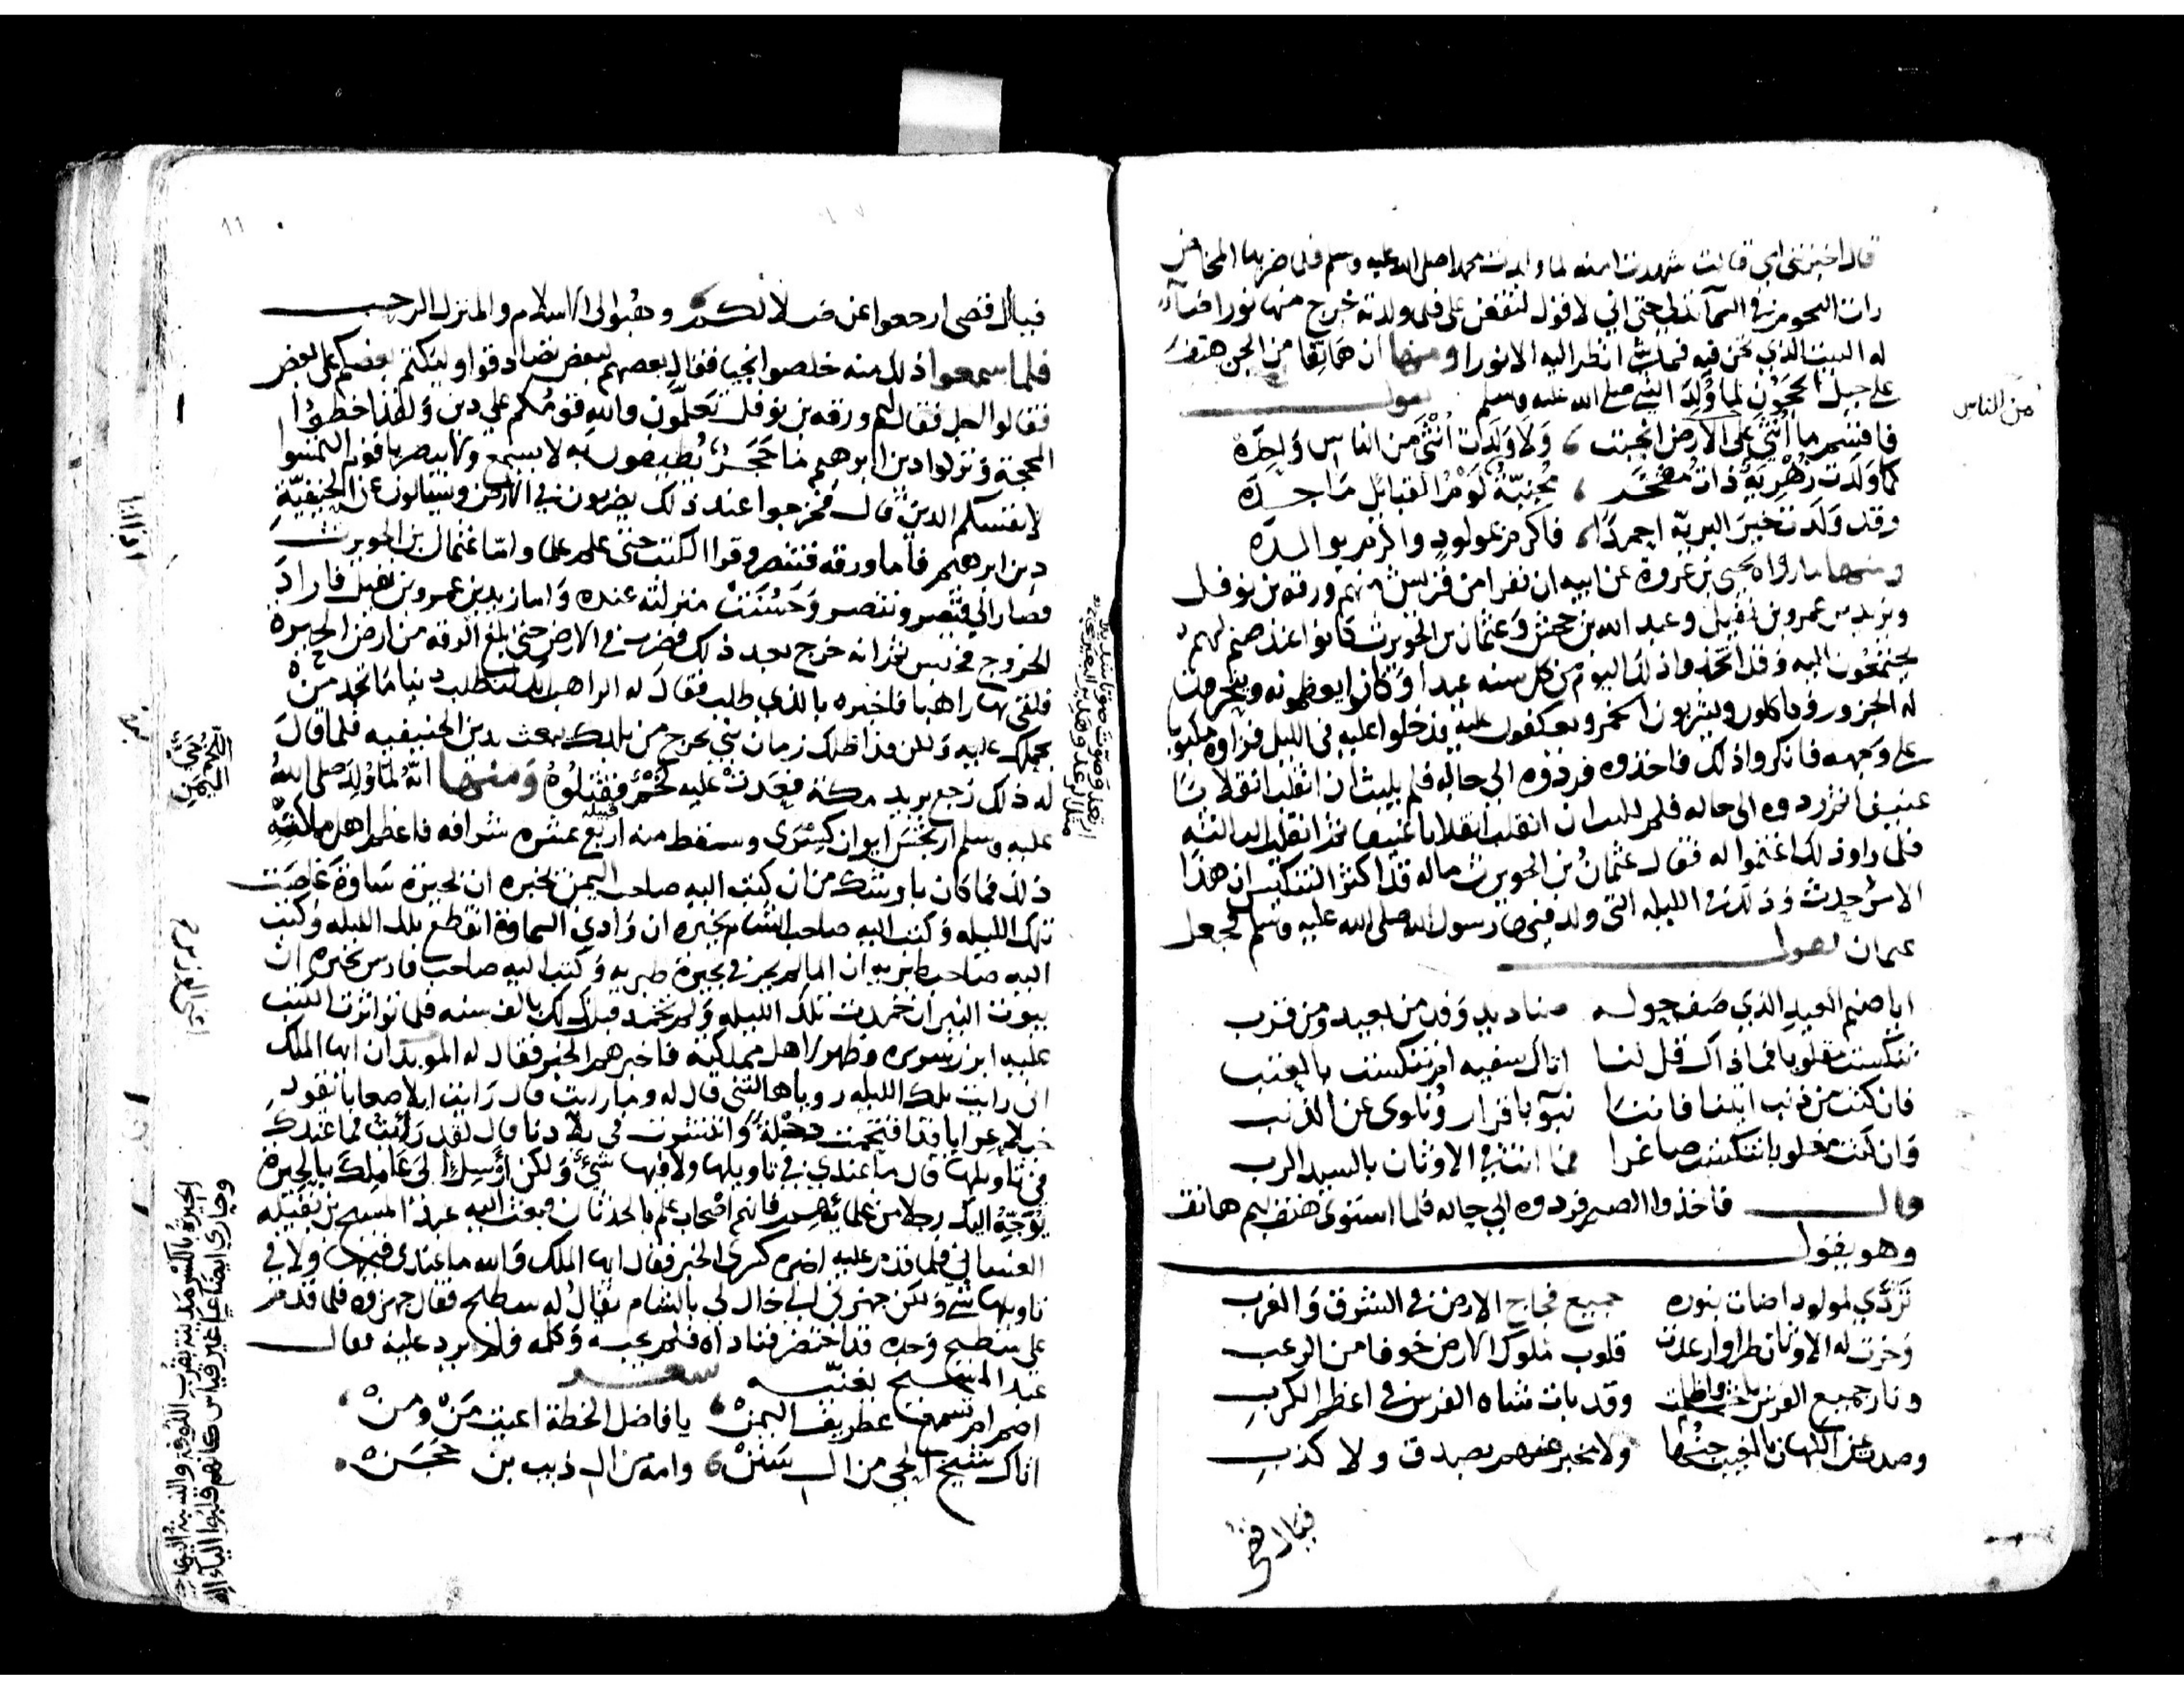 قال اخبرتني امي قالت شهدت امنة لما ولدت محمدا صلى الله عليه وسلم فلما ضربها المخاض
رات النجوم في السمآ تدلي حتى اني لا قول لتقعن على فلما ولدته خرج منها نورا ضآء
له البيت الذي نحن فيه فما شئ انظر اليه الا نورا ومنها ان هاتفا من الجن هتف
على جبل الحجون لما ولد النبي صلى الله عليه وسلم يقول
من الناس
فاقسم ما انثى على الارض انجبت ، ولا ولدت انثى من الناس واحدة
كما ولدت زهرية ذات مفخر ، مجنبة لوم القبائل ماجدة
وقد ولدت خير البرية احمدا ، فاكرم بمولود واكرم بوالدة
ومنها ما رواه يحيى بن عروة عن ابيه ان نفرا من قريش منهم ورقة بن نوفل
وزيد بن عمرو بن نفيل وعبد الله بن جحش وعثمان بن الحويرث كانوا عند صنم لهم
يجتمعون اليه وقد اتخذوا ذلك اليوم من كل سنه عيدا وكانوا يعظمونه وينحرون
له الجزور وياكلون ويشربون الخمر ويعكفون عليه فدخلوا عليه في الليل فراوه مكبوبا
على وجهه فانكروا ذلك فاخذوه فردوه الى حاله فلم يلبث ان انقلب انقلابا
عنيفا ثم ردوه الى حاله فلم يلبث ان انقلب انقلابا عنيفا ثم انقلب الثالثه
فلما راوا ذلك اغتموا له فقال عثمان بن الحويرث ماله قد اكثر التنكيس ان هذا
الامر حدث وذلك في الليله التي ولد فيها رسول الله صلى الله عليه وسلم فجعل
عثمان يقول
ايا صنم العيد الذي صف حوله صناديد وفد من بعيد ومن قرب
تنكست مقلوبا فما ذاك قل لنا اذاك سفيه ام تنكست بالعتب
فان كنت من ذنب اتينا فاننا نبوء باقرار ونلوى عن الذنب
وان كنت مغلوبا تنكست صاغرا فما انت في الاوثان بالسيد الرب
قال فاخذوا الصنم فردوه الى حاله فلما استوى هتف بهم هاتف
وهو يقول
تردي لمولود اضات بنوره جميع فجاج الارض في الشرق والغرب
وخرت له الاوثان طرا وارعدت قلوب ملوك الارض خوفا من الرعب
ونار جميع الفرس باخت واظلمت وقد بات شاه الفرس في اعظم الكرب
وصدت عن الكهان بالغيب جنها ولا مخبر عنهم بصدق ولا كذب
فيال قصي
فيال قصي ارجعوا عن ضلالكم وهبوا الى الاسلام والمنزل الرحب
فلما سمعوا ذلك منه خلصوا نجيا فقال بعضهم لبعض تصادقوا وليكتم بعضكم على بعض
فقالوا اجل فقال لهم ورقه بن نوفل تعلمون والله قومكم على دين ولقد اخطؤا
المحجة وتركوا دين ابرهيم ما حجر تطيفون به لا يسمع ولا يبصر يا قوم التمسوا
لانفسكم الدين قال فخرجوا عند ذلك يضربون في الارض ويسالون عن الحنيفية
دين ابرهيم فاما ورقه فتنصر وقرا الكتب حتى علم علما واما عثمان بن الحويرث
فصار الى قيصر وتنصر وحسنت منزلته عنده واما زيد بن عمرو بن نفيل فاراد
الخروج فحبس ثم انه خرج بعد ذلك فضرب في الارض حتى بلغ الرقه من ارض الجزيرة
فلقي بها راهبا فاخبره بالذي طلب فقال له الراهب انك لتطلب دينا ما تجد من
يحملك عليه ولكن قد اظلك زمان نبي يخرج من بلدك يبعث بدين الحنيفيه فلما قال
له ذلك رجع يريد مكة فعدت عليه لخم فقتلوه ومنها انه لما ولد صلى الله
عليه وسلم ارتجس ايوان كسرى وسقط منه اربع عشره شرافه فاعظم اهل مملكته
ذلك فما كان باوشك من ان كتب اليه صاحب اليمن يخبره ان بحيرة ساوة غاضت
تلك الليله وكتب اليه صاحب الشام يخبره ان وادي السماوة انقطع تلك الليله وكتب
اليه صاحب طبريه ان الما لم يجر في بحيرة طبريه وكتب اليه صاحب فارس يخبره ان
بيوت النيران خمدت تلك الليله ولم تخمد قبل ذلك بالف سنه فلما تواترت الكتب
عليه ابرز سريره وظهر لاهل مملكته فاخبرهم الخبر فقال له الموبذان ايها الملك
اني رايت تلك الليله رويا هالتني قال له وما رايت قال رايت ابلا صعابا تقود
خيلا عرابا قد اقتحمت دجلة وانتشرت في بلادنا قال لقد رايت فما عندك
في تاويلها قال ما عندي في تاويلها ولا فيها شئ ولكن ارسل الى عاملك بالحيرة
يوجه اليك رجلا من علمائهم فانهم اصحاب علم بالحدثان فبعث اليه عبد المسيح بن نفيله
الغساني فلما قدم عليه اخبره كسرى الخبر فقال ايها الملك والله ما عندي فيها ولا في
تاويلها شئ ولكن جهزني الى خال لي بالشام يقال له سطيح فقال جهزوه فلما قدم
على سطيح وجده قد احتضر فناداه فلم يجبه وكلمه فلم يرد عليه فقال
عبد المسيح
اصم ام تسمع غطريف اليمن ، يا فاضل الخطة اعيت من ومن ،
اتاك شيخ الحي من ال سنن ، وامه من ال ذيب بن حجن .
الحيرة بالكسر مدينة بقرب الكوفة والنسبة اليها حيري
وحاري ايضا على غير قياس كانهم قلبوا الياء الفا